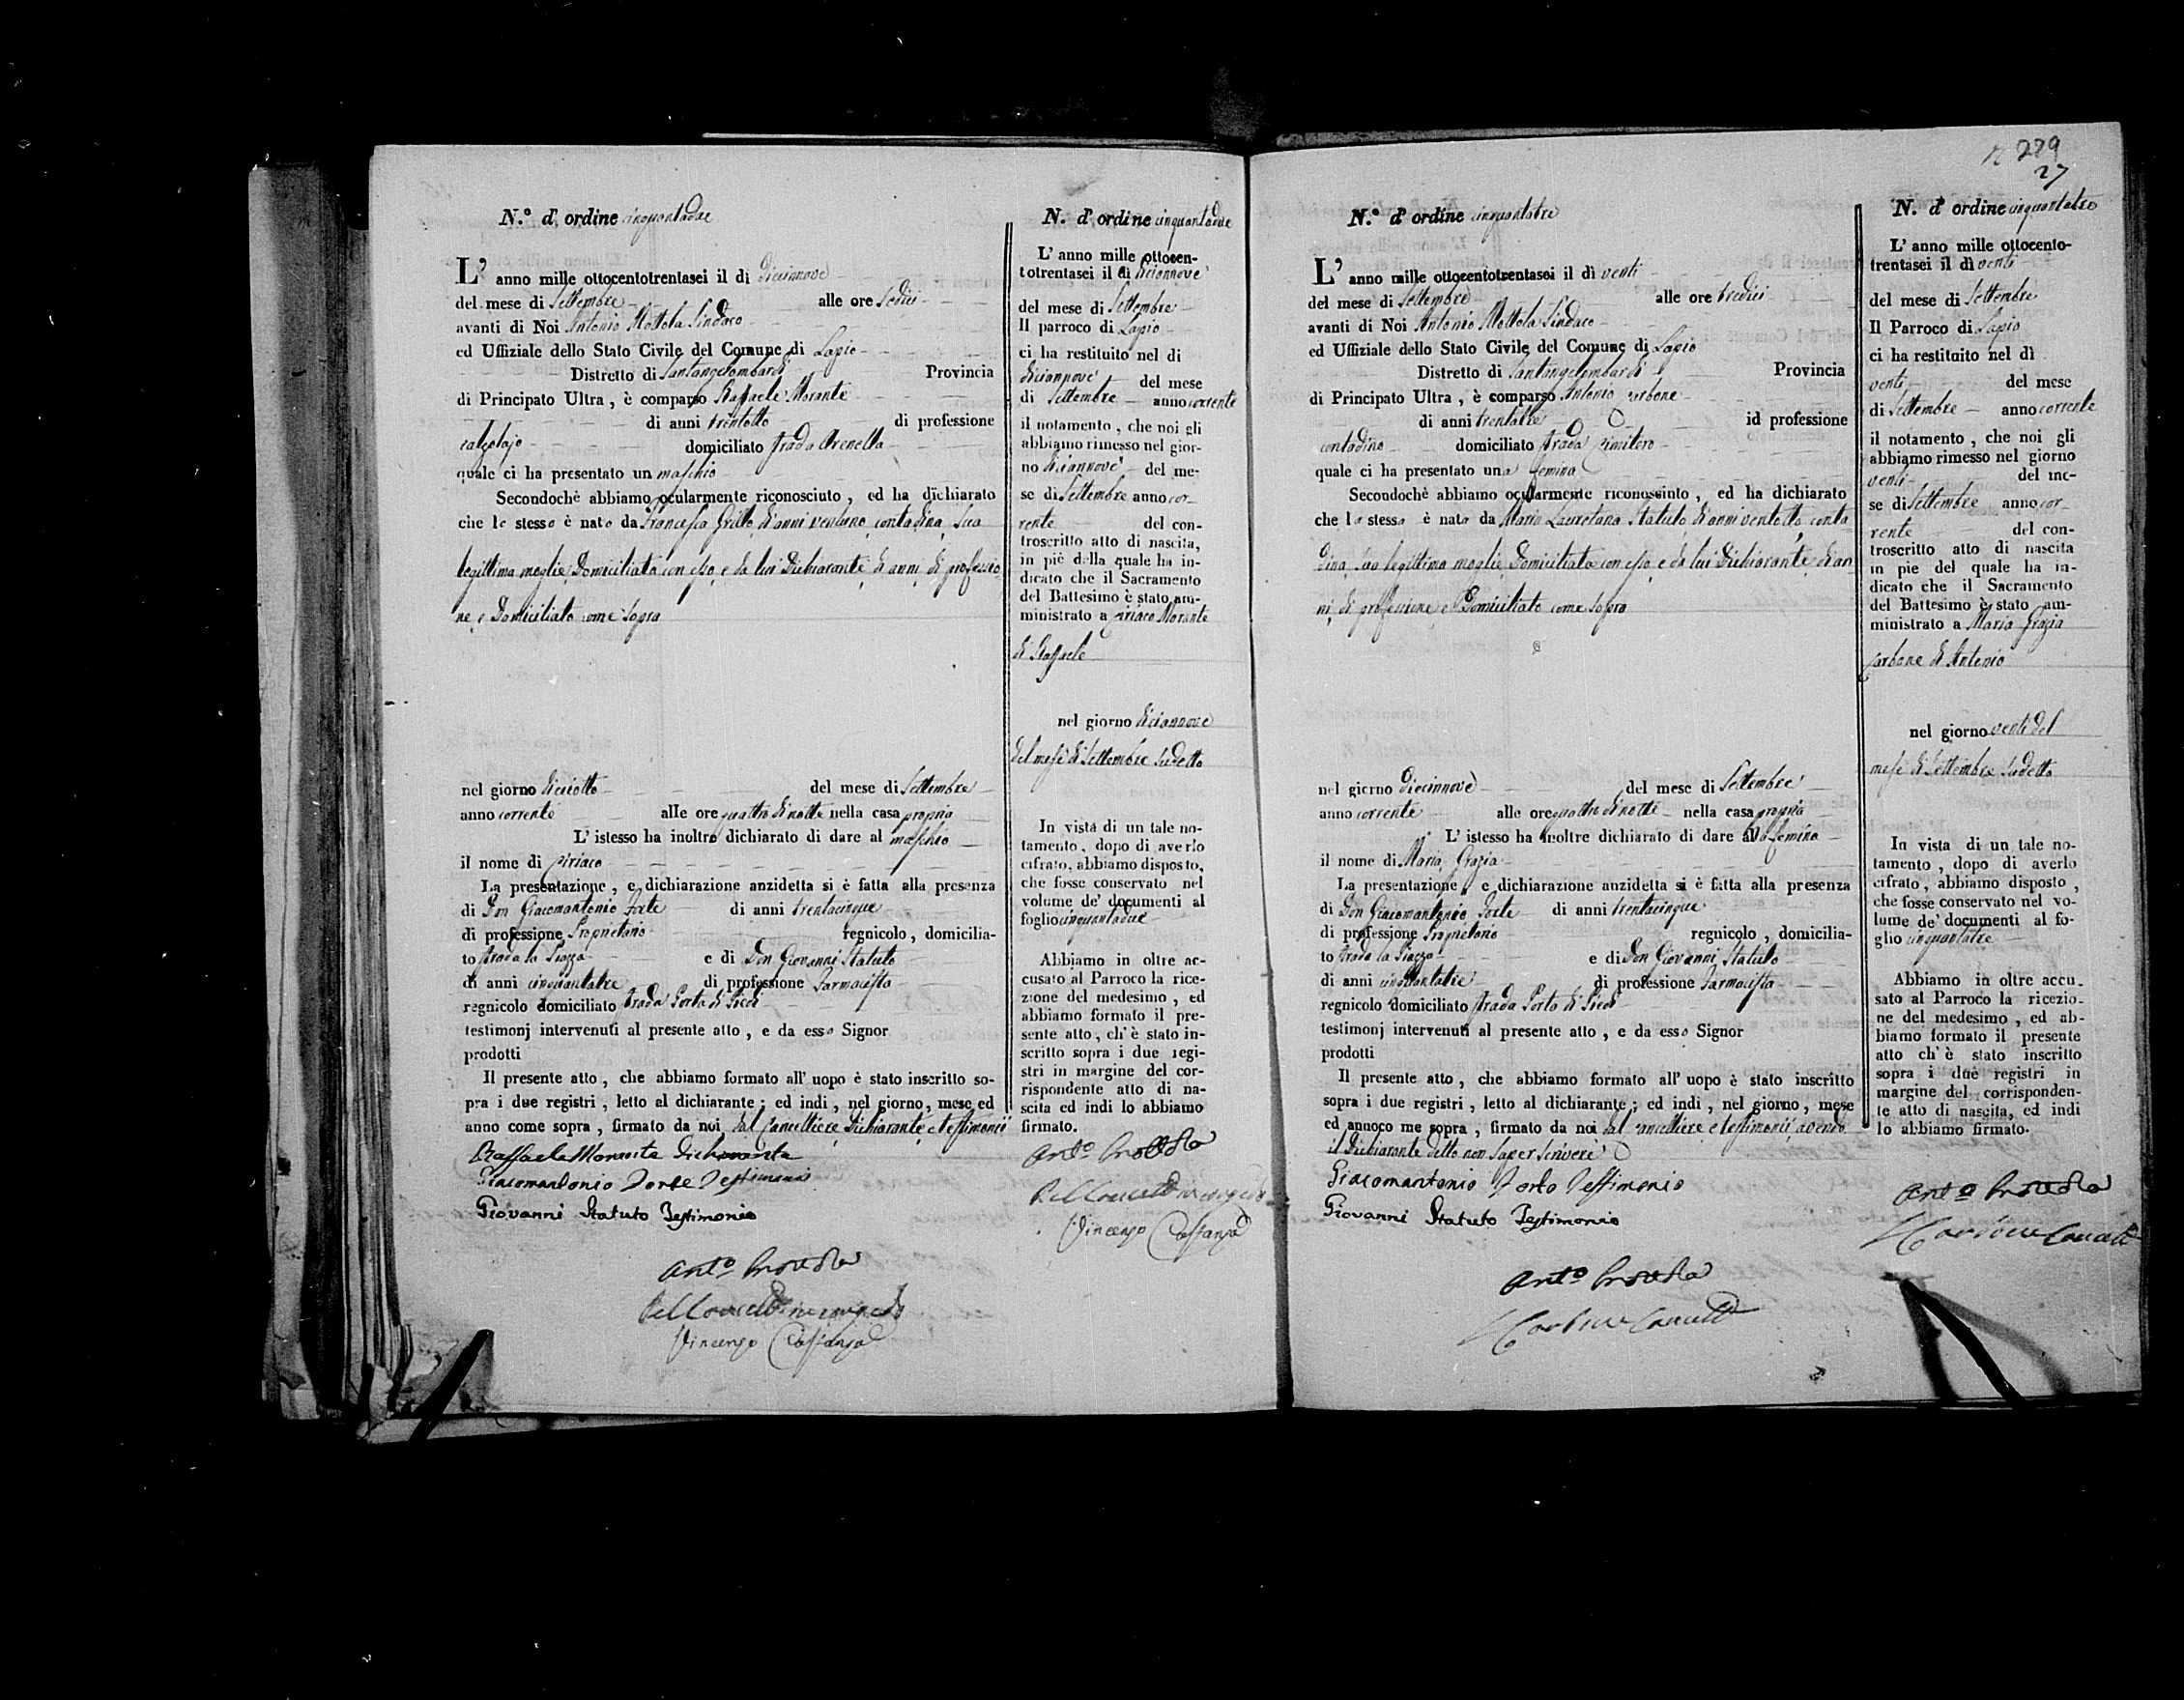 N.º d' ordine cinquantadue
L' anno mille ottocentotrentasei il di diciannove
del mese di Settembre alle ore Sedici
avanti di Noi Antonio Mottola Sindaco
ed Uffiziale dello Stato Civile del Comune di Lapio
Distretto di Santangelombardi Provincia
di Principato Ultra, è comparso Raffaele Morante
di anni trentotto di professione
calzolajo domiciliato strada Arenella
quale ci ha presentato un maschio
Secondochè abbiamo ocularmente riconosciuto, ed ha dichiarato
che lo stesso è nato da Francesca Grillo di anni ventuno, contadina, sua
legittima moglie, Domiciliata con esso, e da lui Dichiarante, di anni, di professio
ne, e Domiciliato come sopra
nel giorno diciotto del mese di Settembre
anno corrente alle ore quattro di notte nella casa propria
L' istesso ha inoltre dichiarato di dare al maschio
il nome di Ciriaco
La presentazione, e dichiarazione anzidetta si è fatta alla presenza
di Don Giacomantonio Forte di anni trentacinque
di professione Proprietario regnicolo, domicilia-
to strada la Piazza e di Don Giovanni Statuto
di anni cinquantatre di professione Farmacista
regnicolo domiciliato strada Porta di Piedi
testimonj intervenuti al presente atto, e da esso Signor
prodotti
Il presente atto, che abbiamo formato all' uopo è stato inscritto so-
pra i due registri, letto al dichiarante; ed indi, nel giorno, mese ed
anno come sopra, firmato da noi dal Cancelliere, dichiarante, e testimonii
Raffaele Morante dichiarante
Giacomantonio Forte Testimonio
Giovanni Statuto Testimonio
Ant.o Mottola
Vincenzo Costanza
N. d' ordine cinquantadue
L' anno mille ottocen-
totrentasei il di diciannove
del mese di Settembre
Il parroco di Lapio
ci ha restituito nel di
diciannove del mese
di Settembre anno corrente
il notamento, che noi gli
abbiamo rimesso nel gior-
no diciannove del me-
se di Settembre anno cor-
rente del con-
troscritto atto di nascita,
in piè della quale ha in-
dicato che il Sacramento
del Battesimo è stato am-
ministrato a Ciriaco Morante
di Raffaele
nel giorno diciannove
del mese di Settembre sudetto
In vista di un tale no-
tamento, dopo di averlo
cifrato, abbiamo disposto,
che fosse conservato nel
volume de' documenti al
foglio cinquantadue
Abbiamo in oltre ac-
cusato al Parroco la rice-
zione del medesimo, ed
abbiamo formato il pre-
sente atto, ch' è stato in-
scritto sopra i due regi-
stri in margine del cor-
rispondente atto di na-
scita ed indi lo abbiamo
firmato.
Ant.o Mottola
Vincenzo Costanza
279
27
N.º d' ordine cinquantatre
L' anno mille ottocentotrentasei il dì venti
del mese di Settembre alle ore tredici
avanti di Noi Antonio Mottola Sindaco
ed Uffiziale dello Stato Civile del Comune di Lapio
Distretto di Santangelombardi Provincia
di Principato Ultra, è comparso Antonio Carbone
di anni trentatre id professione
contadino domiciliato strada Cimitero
quale ci ha presentato una femina
Secondochè abbiamo ocularmente riconosciuto, ed ha dichiarato
che la stessa è nata da Maria Lauretana Statuto di anni ventotto, conta
dina, sua legittima moglie, Domiciliata con esso, e da lui Dichiarante, di an-
ni, di professione, e Domiciliato come sopra
nel giorno diecinnove del mese di Settembre
anno corrente alle ore quattro di notte nella casa propria
L' istesso ha inoltre dichiarato di dare alla femina
il nome di Maria Grazia
La presentazione, e dichiarazione anzidetta si è fatta alla presenza
di Don Giacomantonio Forte di anni trentacinque
di professione Proprietario regnicolo, domicilia-
to strada la Piazza e di Don Giovanni Statuto
di anni cinquantatre di professione Farmacista
regnicolo domiciliato strada Porta di Piedi
testimonj intervenuti al presente atto, e da esso Signor
prodotti
Il presente atto, che abbiamo formato all' uopo è stato inscritto
sopra i due registri, letto al dichiarante; ed indi, nel giorno, mese
ed annoco me sopra, firmato da noi dal Cancelliere e testimonii, avendo
il Dichiarante detto non saper scrivere
Giacomantonio Forte Testimonio
Giovanni Statuto Testimonio
Ant.o Mottola
Carbone Cancell
N. d' ordine cinquantatre
L' anno mille ottocento-
trentasei il dì venti
del mese di Settembre
Il Parroco di Lapio
ci ha restituito nel dì
venti del mese
di Settembre anno corrente
il notamento, che noi gli
abbiamo rimesso nel giorno
venti del me-
se di Settembre anno cor-
rente del con-
troscritto atto di nascita
in pie del quale ha in-
dicato che il Sacramento
del Battesimo è stato am-
ministrato a Maria Grazia
Carbone di Antonio
nel giorno venti del
mese di Settembre sudetto
In vista di un tale no-
tamento, dopo di averlo
cifrato, abbiamo disposto,
che fosse conservato nel vo-
lume de' documenti al fo-
glio cinquantatre
Abbiamo in oltre accu-
sato al Parroco la ricezio-
ne del medesimo, ed ab-
biamo formato il presente
atto ch' è stato inscritto
sopra i due registri in
margine del corrisponden-
te atto di nascita, ed indi
lo abbiamo firmato.
Ant.o Mottola
Carbone Cancell